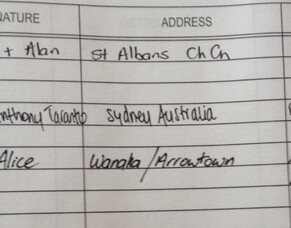 NATURE ADDRESS
+ Alan St Albans Ch Ch
nthony Taranto Sydney Australia
Alice Wanaka/Arrowtown